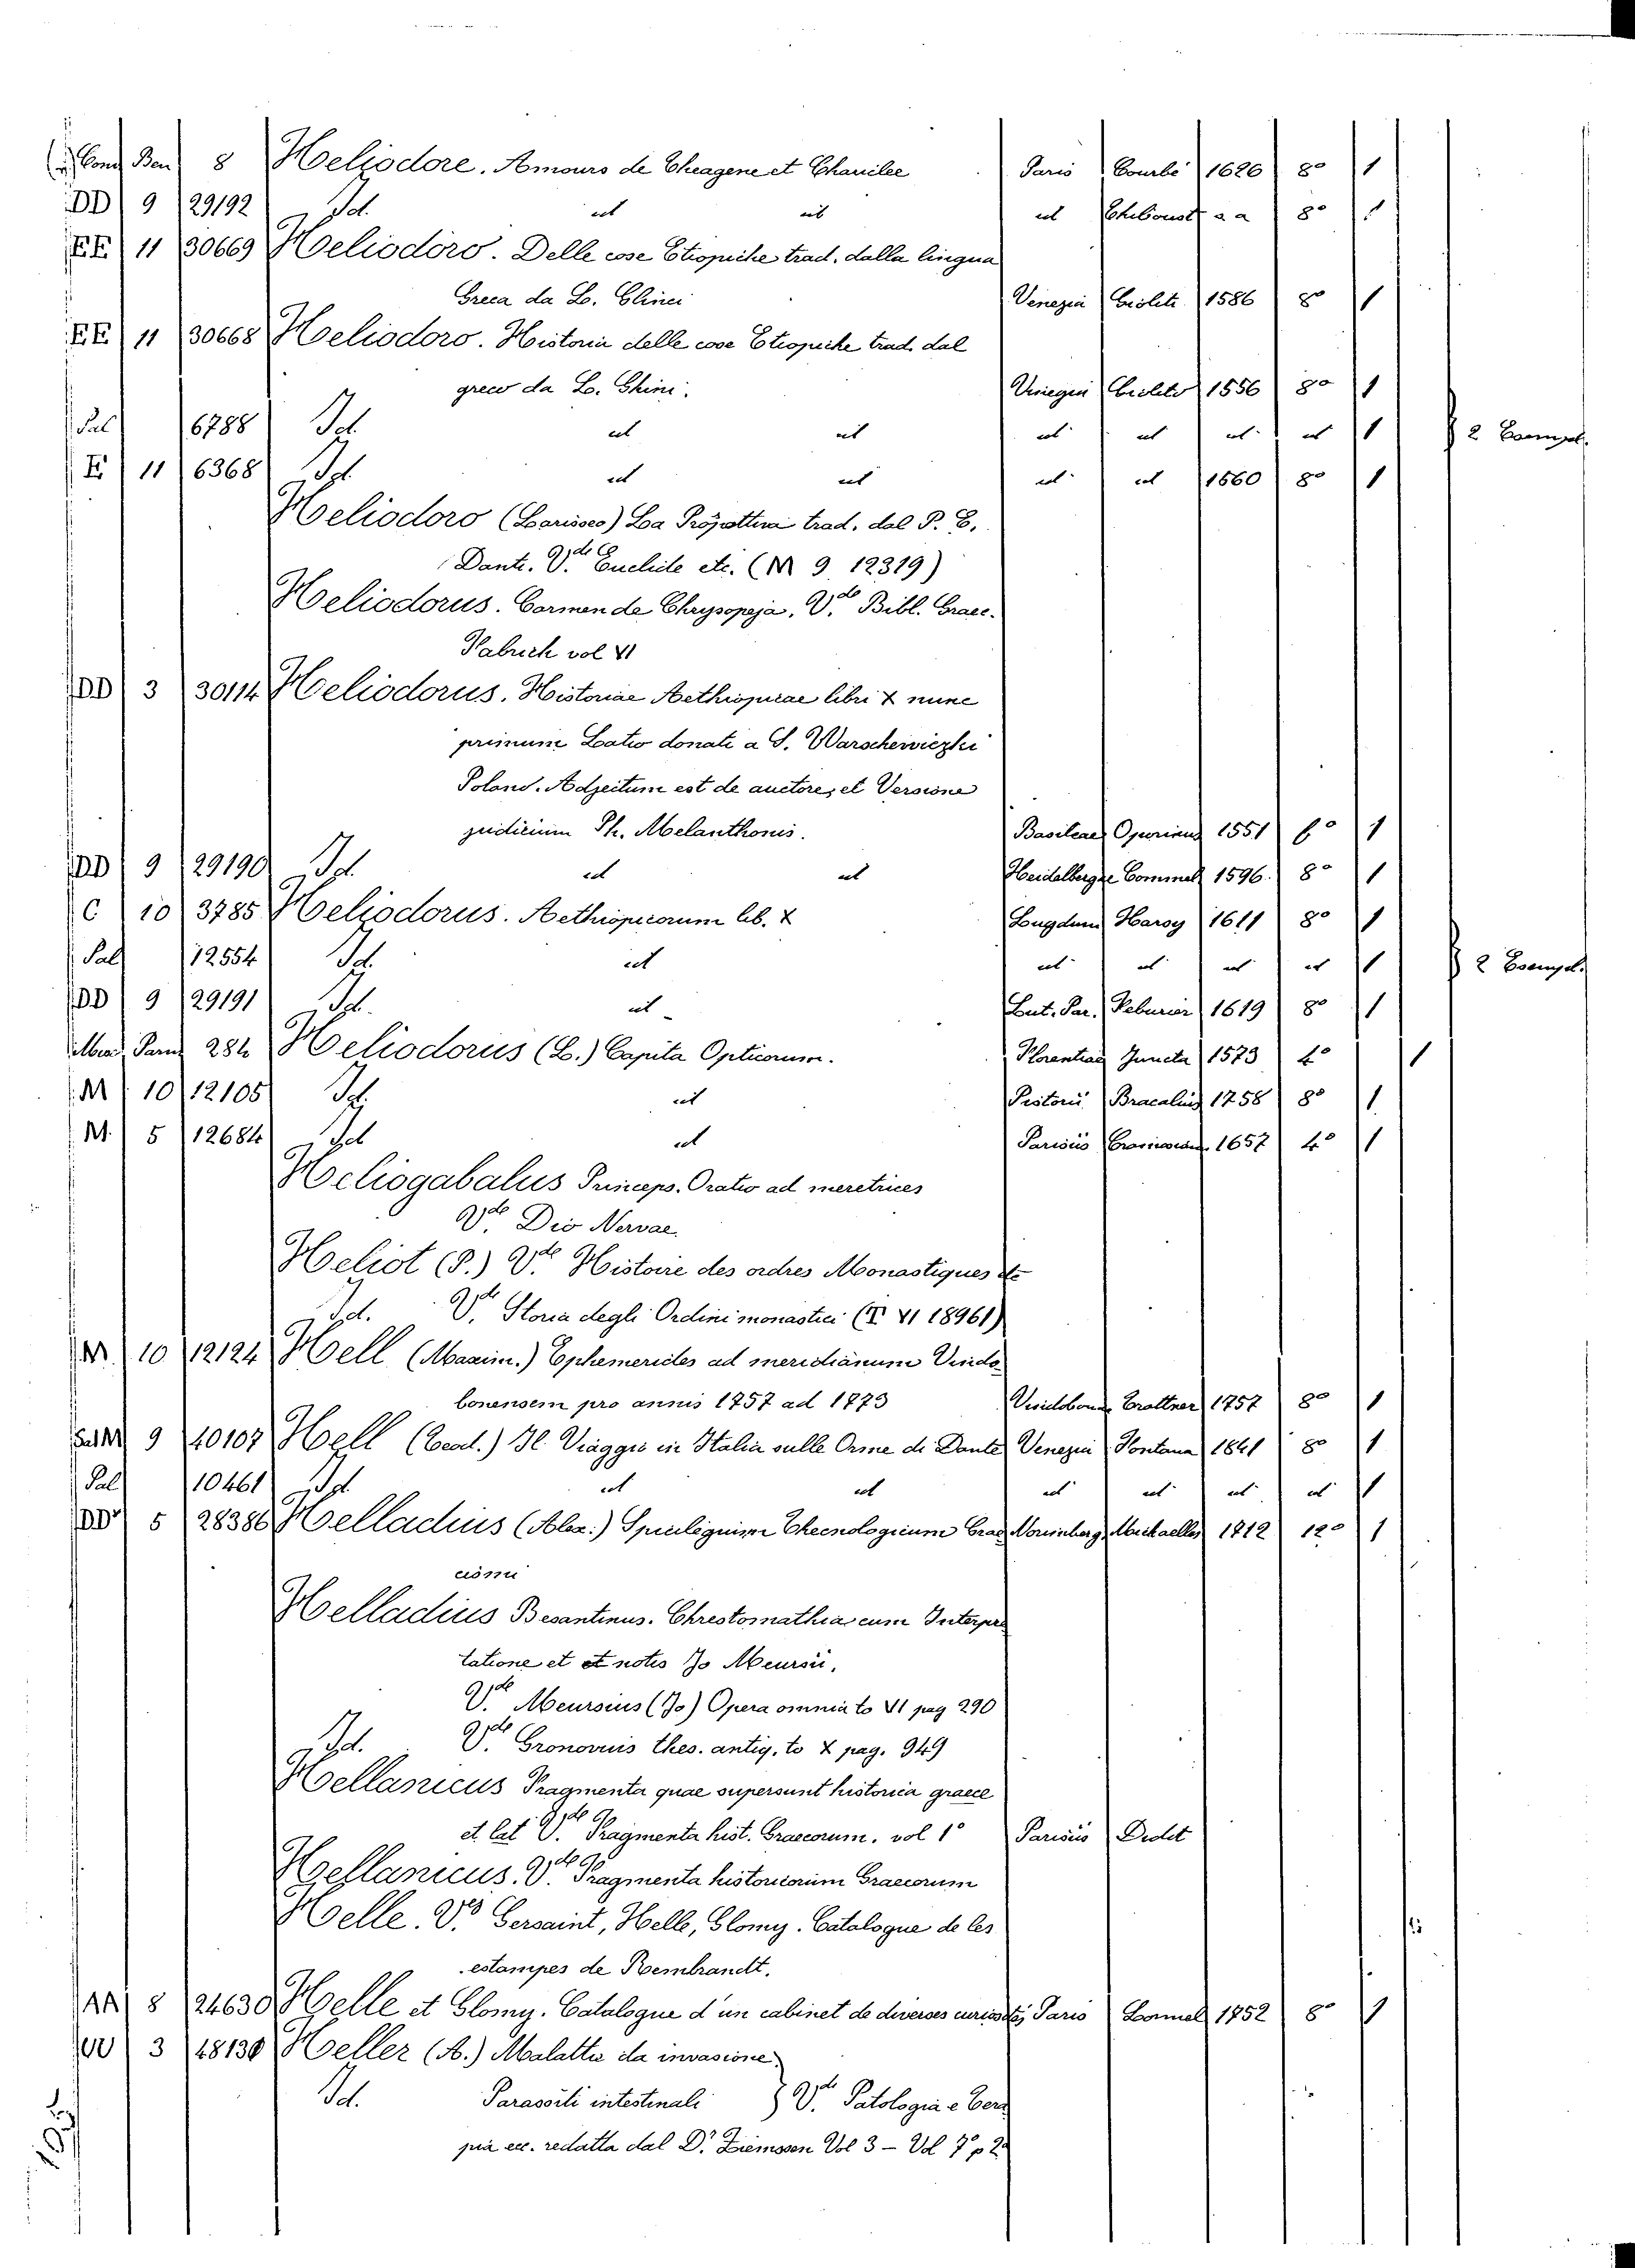 Cond Ben 8 Heliodore. Amours de Theagene et Chariclee Paris Courbé 1626 8° 1
DD 9 29192 Id. id id id Thiboust s. a 8° 1
EE 11 30669 Heliodoro. Delle cose Etiopiche trad. dalla lingua
Greca da L. Ghinei Venezia Giolito 1586 8° 1
EE 11 30668 Heliodoro. Historia delle cose Etiopiche trad. dal
greco da L. Ghini. Venezia Giolito 1556 8° 1
Sal 6788 Id. id id id id id id 1 2 Esempl.
E 11 6368 Id. id id id id 1560 8° 1
Heliodoro (Larisseo) La Prospettiva trad. dal P. E.
Danti. V.de Euclide etc. (M 9 12319)
Heliodorus. Carmen de Chrysopeja. V.de Bibl. Graec.
Fabrich vol VI
DD 3 30114 Heliodorus. Historiae Aethiopicae libri X nunc
primum Latio donati a S. Warschewiczki
Polono. Adjectum est de auctore, et Versione
judicium Ph. Melanthonis. Basileae Oporinus 1551 f° 1
DD 9 29190 Id. id id Heidelbergae Commel 1596. 8° 1
C 10 3785 Heliodorus. Aethiopicorum lib. X Lugduni Harsy 1611 8° 1
Sal 12554 Id. id id id id id 1 2 Esempl.
DD 9 29191 Id. id Lut. Par. Feburier 1619 8° 1
284 Heliodorus (L.) Capita Opticorum. Florentiae Juncta 1573 4° 1
M 10 12105 Id. id Pistorii Bracalius 1758 8° 1
M. 5 12684 Id id Parisiis 1657 4° 1
Heliogabalus Princeps. Oratio ad meretrices
V.de Dio Nervae.
Heliot (P.) V.de Histoire des ordres Monastiques etc
Id. V.de Storia degli Ordini monastici (T VI 18961)
M 10 12124 Hell (Maxim.) Ephemerides ad meridianum Vindo
bonensem pro annis 1757 ad 1773 Vindobonae Trattner 1757 8° 1
Sal M 9 10107 Hell (Teod.) Il Viaggio in Italia sulle Orme di Dante Venezia Fontana 1841 8° 1
Sal 10461 Id. id id id id id id 1
DD 5 28386 Helladius (Alex.) Spicilegium Thecnologicum Grae Norimberg Michaelles 1712 12° 1
cismi
Helladius Besantinus. Chrestomathia cum Interpre
tatione et et notis Jo Meursii.
V.de Meursius (Jo) Opera omnia to VI pag 290
Id. V.de Gronovius thes. antig. to X pag. 949
Hellanicus Fragmenta quae supersunt historica graece
et lat V.de Fragmenta hist. Graecorum. vol 1° Parisiis Didot
Hellanicus. V.de Fragmenta historicorum Graecorum
Helle. V.de Gersaint, Helle, Glomy. Catalogue de les
estampes de Rembrandt.
AA 8 24630 Helle et Glomy. Catalogue d'un cabinet de diverses curiosités Paris 1752 8° 1
3 18130 Heller (A.) Malattie da invasione
Id. Parassiti intestinali } V.de Patologia e Tera
pia ecc. redatta dal D.r Ziemssen Vol 3 - Vol 7° p 2a